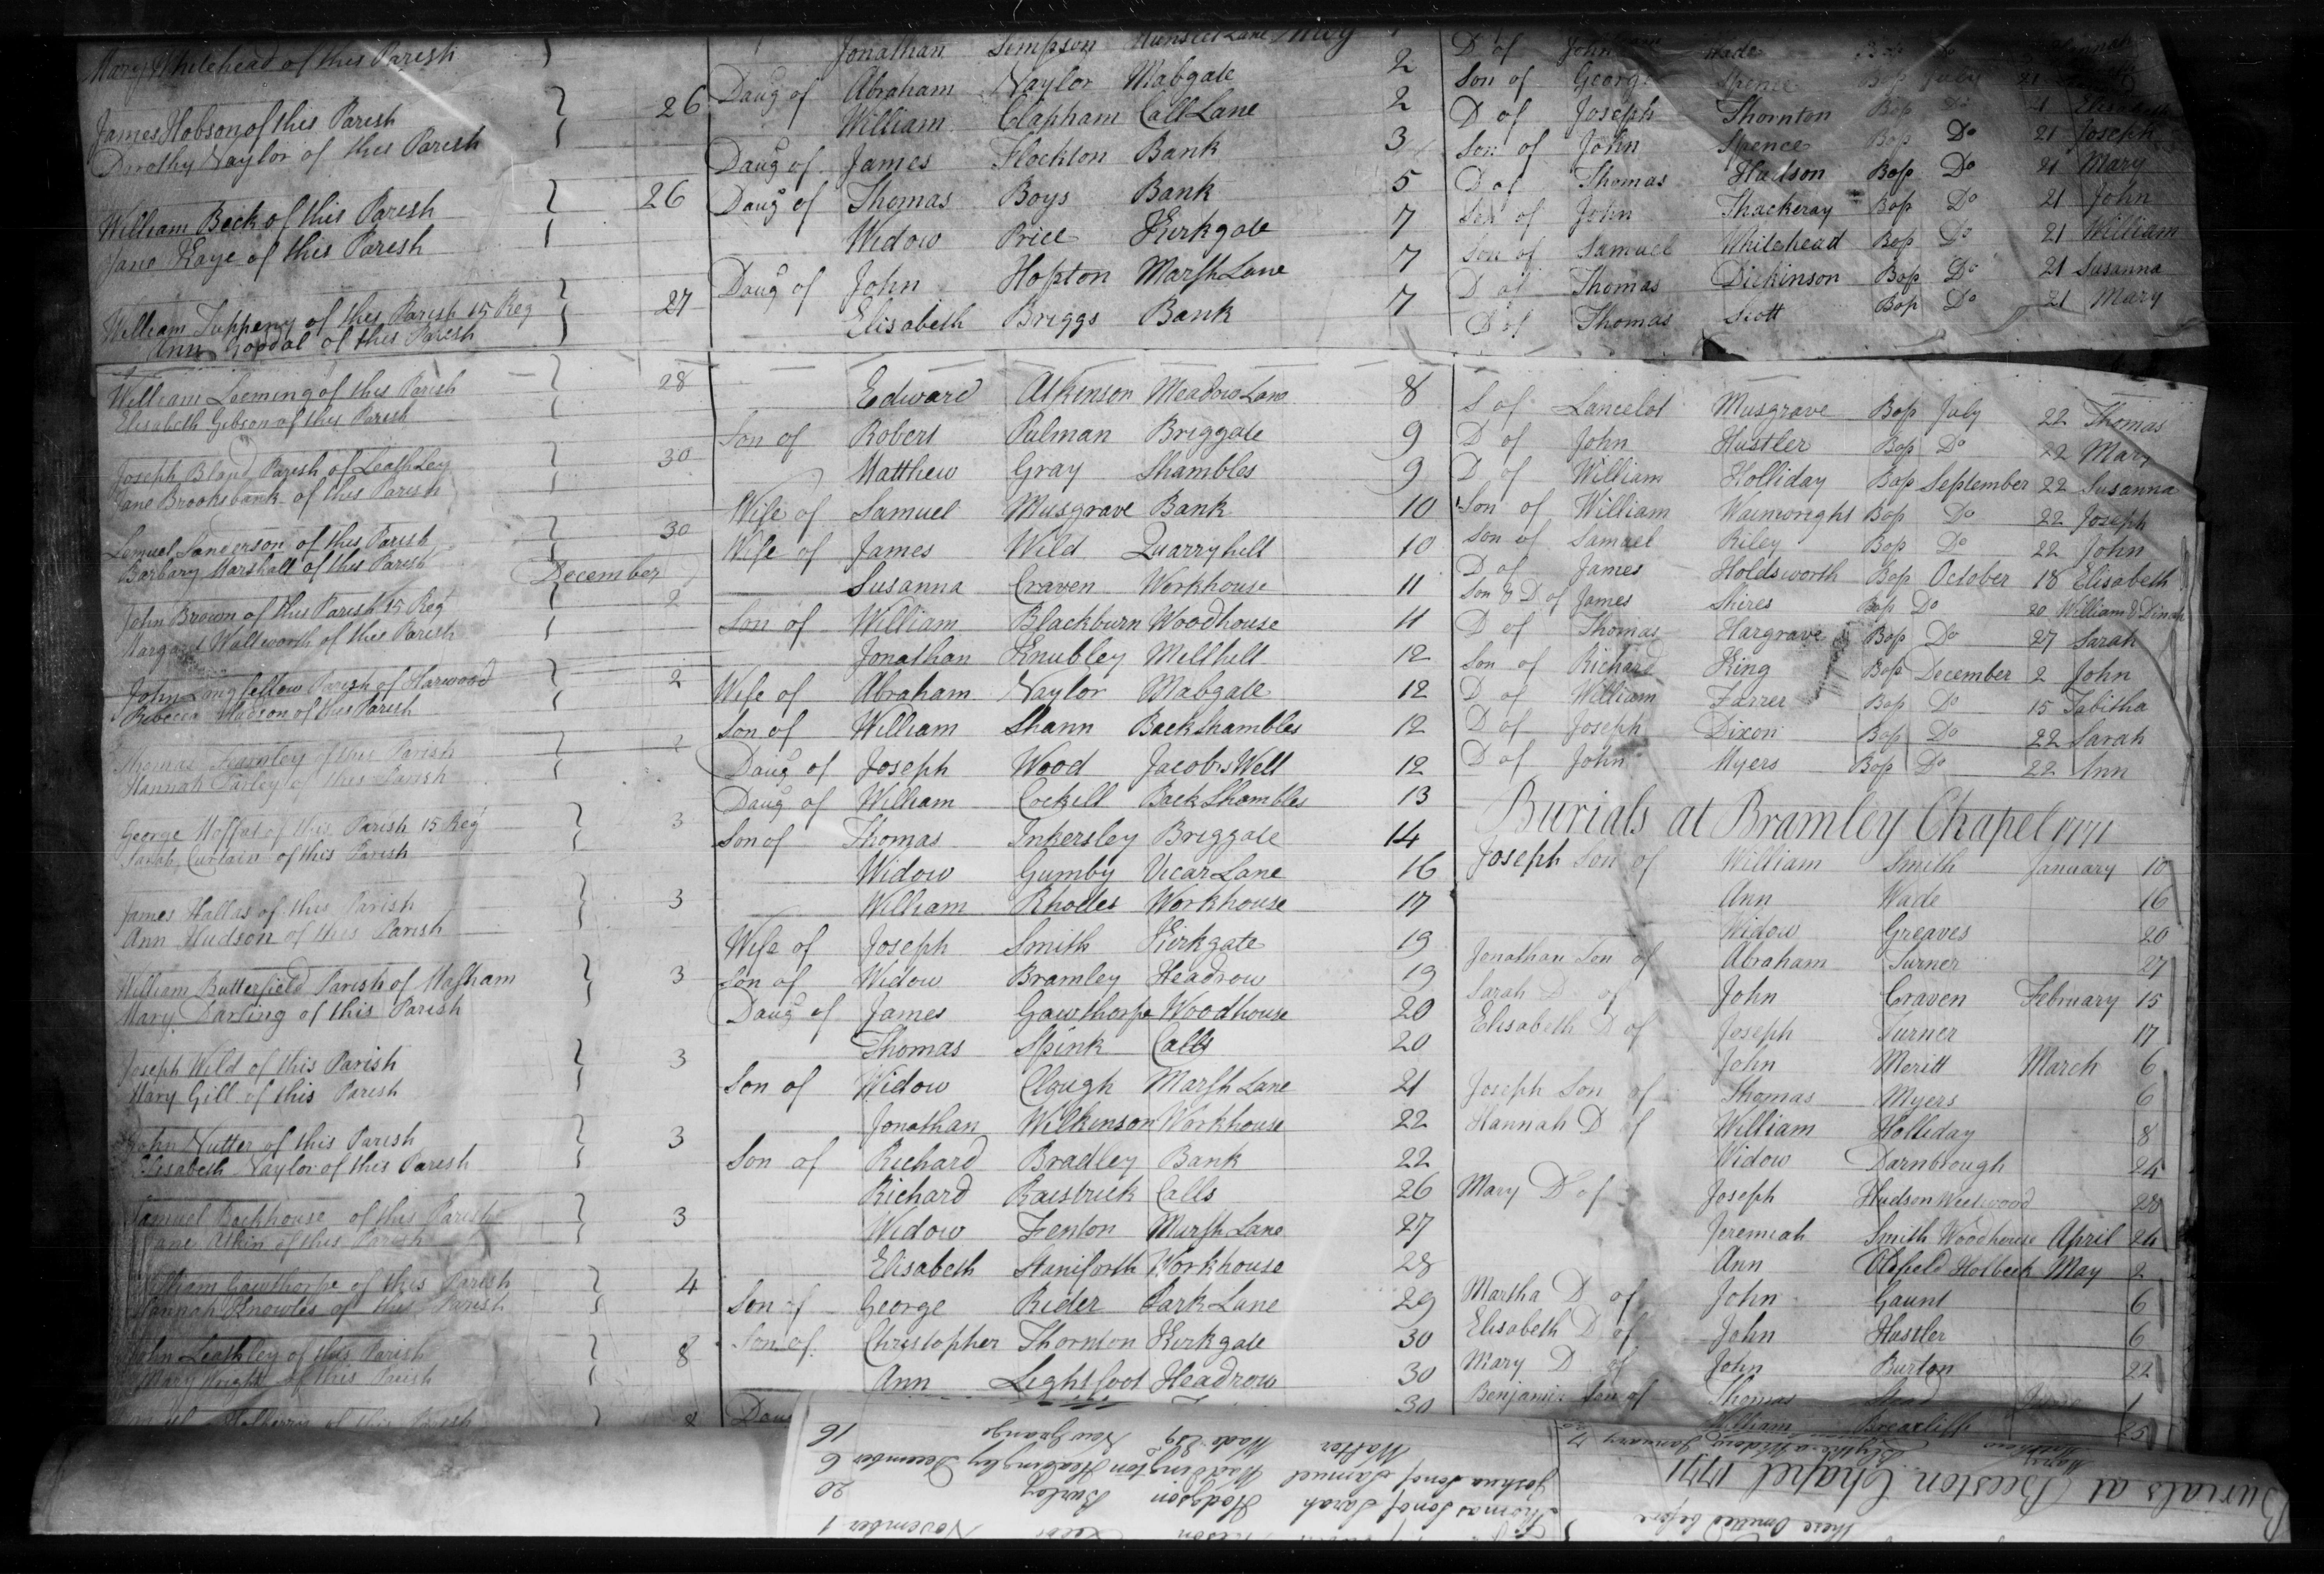 Mary Whitehead of this Parish
James Hobson of this Parish } 26
Dorothy Naylor of this Parish
William Beck of this Parish } 26
Jane Kaye of this Parish
William Tuppeny of this Parish 15 Reg } 27
Ann Goodal of this Parish
William Leeming of this Parish } 28
Elisabeth Gibson of this Parish
Joseph Bland Parish of Leathley } 30
Jane Brooksbank of this Parish
Lemuel Sanderson of this Parish } 30
Barbary Marshall of this Parish
December
John Brown of this Parish 15 Reg } 2
Margaret Wallworth of this Parish
John Longfellow Parish of Harwood } 2
Rebecca Hudson of this Parish
Thomas Fearnley of this Parish } 2
Hannah Farley of this Parish
George Moffat of this Parish 15 Reg } 3
Sarah Curtain of this Parish
James Hallas of this Parish } 3
Ann Hudson of this Parish
William Butterfield Parish of Masham } 3
Mary Darling of this Parish
Joseph Wild of this Parish } 3
Mary Gill of this Parish
John Nutter of this Parish } 3
Elisabeth Naylor of this Parish
Samuel Backhouse of this Parish } 3
Jane Atkin of this Parish
William Gawthorpe of this Parish } 4
Hannah Knowles of this Parish
John Leathley of this Parish } 8
Mary Wright of this Parish
of this Parish } 8
Jonathan Simpson Hunslet Lane May
Daug of Abraham Naylor Mabgate 2
William Clapham Call Lane 2
Daug of James Flockton Bank 3
Daug of Thomas Boys Bank 5
Widow Price Kirkgate 7
Daug of John Hopton Marsh Lane 7
Elisabeth Briggs Bank 7
Edward Atkinson Meadow Lane 8
Son of Robert Pulman Briggate 9
Matthew Gray Shambles 9
Wife of Samuel Musgrave Bank 10
Wife of James Wild Quarryhill 10
Susanna Craven Workhouse 11
Son of William Blackburn Woodhouse 11
Jonathan Knubley Millhill 12
Wife of Abraham Naylor Mabgate 12
Son of William Shann Back Shambles 12
Daug of Joseph Wood Jacobs Well 12
Daug of William Cockill Back Shambles 13
Son of Thomas Inkersley Briggate 14
Widow Gumby Vicar Lane 16
William Rhodes Workhouse 17
Wife of Joseph Smith Kirkgate 19
Son of Widow Bramley Headrow 19
Daug of James Gawthorpe Woodhouse 20
Thomas Spink Calls 20
Son of Widow Clough Marsh Lane 21
Jonathan Wilkinson Workhouse 22
Son of Richard Bradley Bank 22
Richard Raistrick Calls 26
Widow Fenton Marsh Lane 27
Elisabeth Staniforth Workhouse 28
Son of George Rider Park Lane 29
Son of Christopher Thornton Kirkgate 30
Ann Lightfoot Headrow 30
Daug 30
D of John Wade Bap Do Hannah
Son of George Spence Bap July 21
D of Joseph Thornton Bap Do 21 Elisabeth
Son of John Spence Bap Do 21 Joseph
D of Thomas Hudson Bap Do 21 Mary
Son of John Thackeray Bap Do 21 John
Son of Samuel Whitehead Bap Do 21 William
D of Thomas Dickinson Bap Do 21 Susanna
D of Thomas Scott Bap Do 21 Mary
S of Lancelot Musgrave Bap July 22 Thomas
D of John Hustler Bap Do 22 Mary
D of William Holliday Bap September 22 Susanna
Son of William Wainwright Bap Do 22 Joseph
Son of Samuel Riley Bap Do 22 John
D of James Holdsworth Bap October 18 Elisabeth
Son & D of James Shires Bap Do 20 William & Dinah
D of Thomas Hargrave Bap Do 27 Sarah
Son of Richard King Bap December 2 John
D of William Farrer Bap Do 15 Tabitha
D of Joseph Dixon Bap Do 22 Sarah
D of John Myers Bap Do 22 Ann
Burials at Bramley Chapel 1771
Joseph Son of William Smith January 10
Ann Wade 16
Widow Greaves 20
Jonathan Son of Abraham Turner 27
Sarah D of John Craven February 15
Elisabeth D of Joseph Turner 17
John Meritt March 6
Joseph Son of Thomas Myers 6
Hannah D of William Holliday 8
Widow Darnbrough 24
Mary D of Joseph Hudson Weetwood 28
Jeremiah Smith Woodhouse April 24
Ann Olefield Holbeck May 2
Martha D of John Gaunt 6
Elisabeth D of John Hustler 6
Mary D of John Burton 22
Benjamin Son of Thomas Stead June 1
William Brearcliffe 25
Burials at Beeston Chapel 1771
Widow January
these Omitted before
November 1
Thomas Son of Sarah Hodgson Burley 20
Joshua Son of Samuel Waddington Headingley December 6
Walter Wade Esq New Grange 16